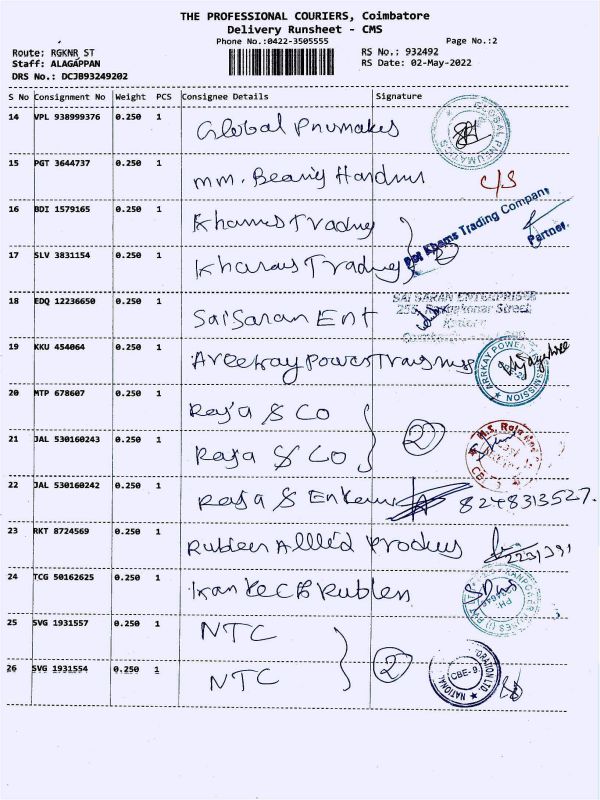 THE PROFESSIONAL COURIERS, Coimbatore
Delivery Runsheet - CMS
Phone No.:0422-3505555 Page No.:2
Route: RGKNR_ST RS No.: 932492
Staff: ALAGAPPAN RS Date: 02-May-2022
DRS No.: DCJB93249202
S No Consignment No Weight PCS Consignee Details Signature
14 VPL 938999376 0.250 1 Global Pnumakes
15 PGT 3644737 0.250 1 MM. Bearing C/S
16 BDI 1579165 0.250 1 Khams Trading
For Khams Trading Company
Partner.
17 SLV 3831154 0.250 1 Trading 2
18 EDQ 12236650 0.250 1 Sai Saran Ent
SAI SARAN ENTERPRISES
19 KKU 454064 0.250 1 Power
ARRKAY POWER
20 MTP 678607 0.250 1 Raja & Co
21 JAL 530160243 0.250 1 Raja & Co 2
22 JAL 530160242 0.250 1 Raja & 8248313527.
23 RKT 8724569 0.250 1 Allied
24 TCG 50162625 0.250 1
25 SVG 1931557 0.250 1 NTC
26 SVG 1931554 0.250 1 NTC 2
CBE-9
NATIONAL